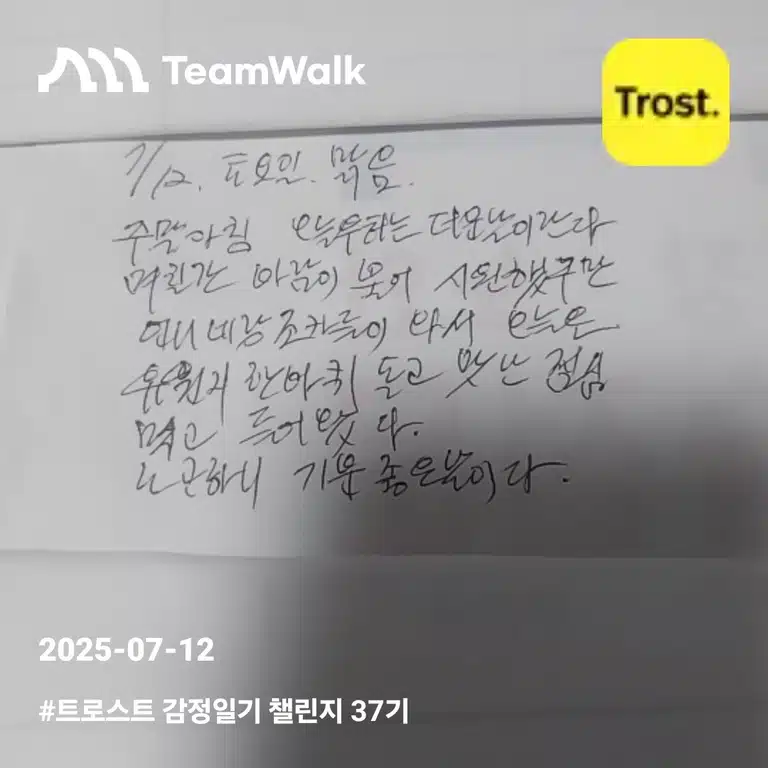 TeamWalk
Trost.
7/12. 토요일. 맑음.
주말아침 오늘우하는 더운날이란다
며칠간 바람이 불어 시원했구만
언니네랑 조카들이 와서 오늘은
유원지 한바퀴 돌고 맛난 점심
먹고 들어왔다.
노곤하니 기분좋은날이다.
2025-07-12
#트로스트 감정일기 챌린지 37기